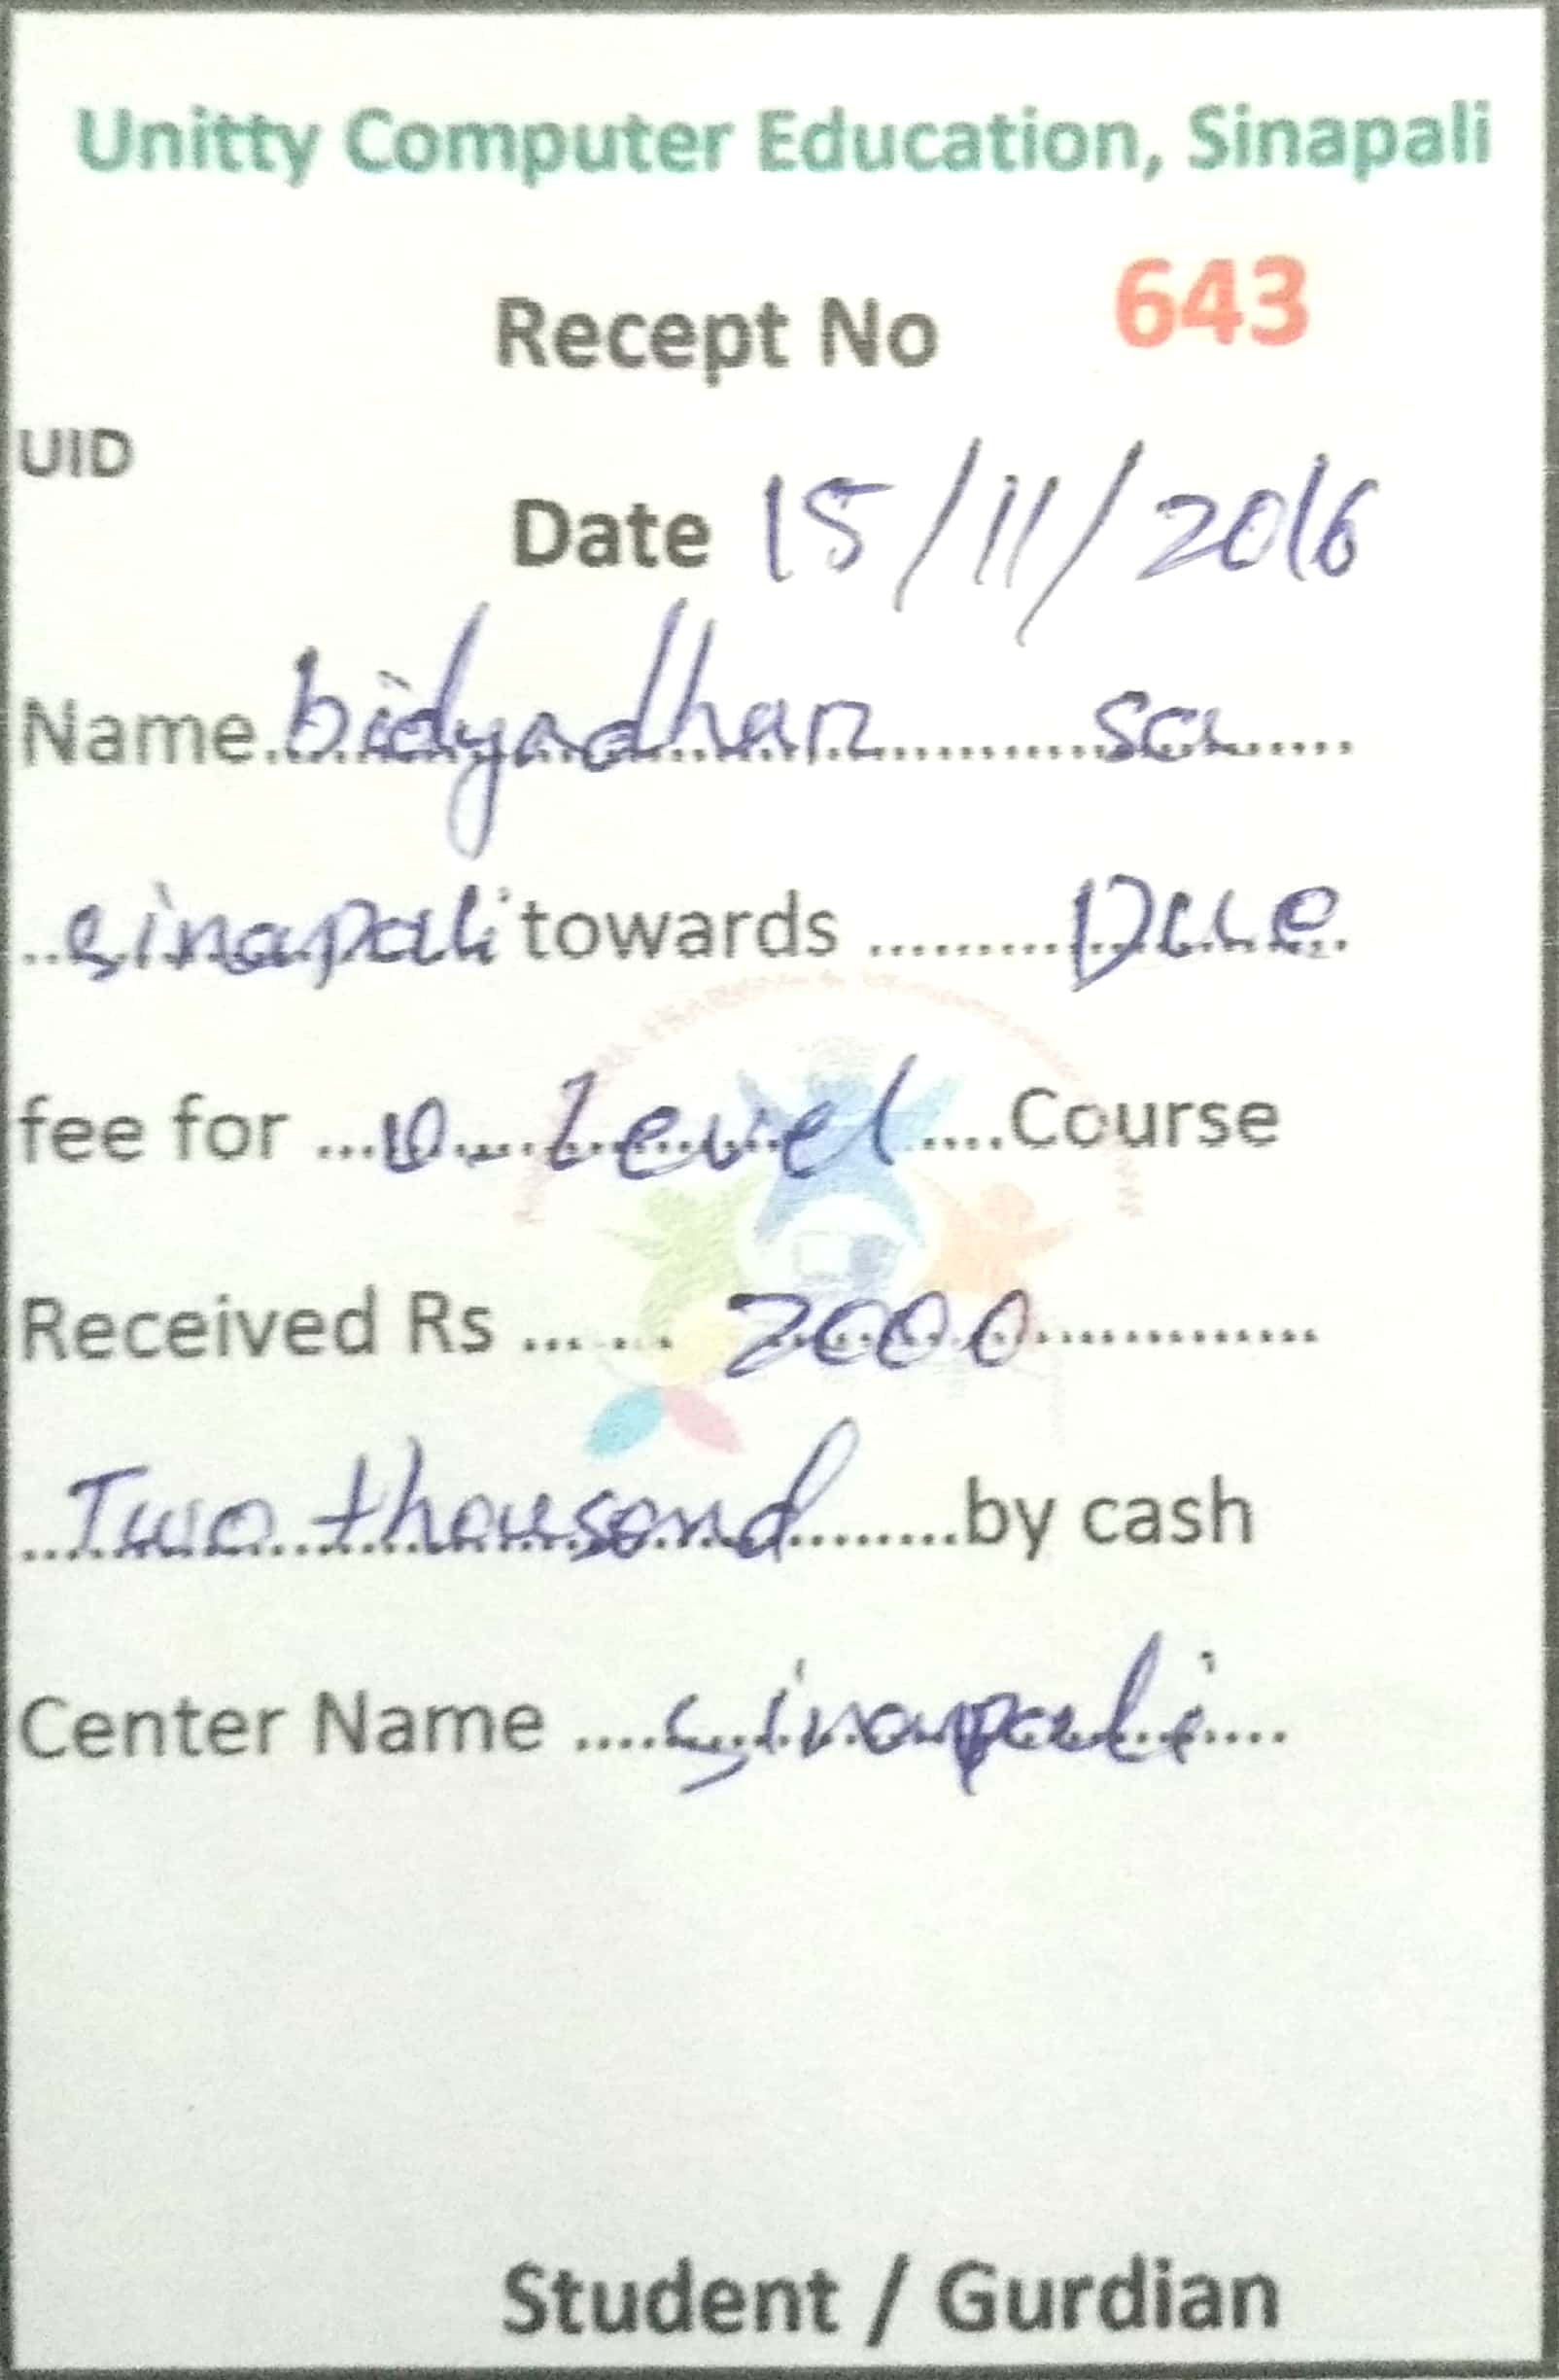 Unitty Computer Education, Sinapali
Recept No 643
UID
Date 15/11/2016
Name bidyadhar sa
sinapali towards Due
fee for O-Level Course
Received Rs 2000
Two thousand by cash
Center Name sinapali
Student / Gurdian